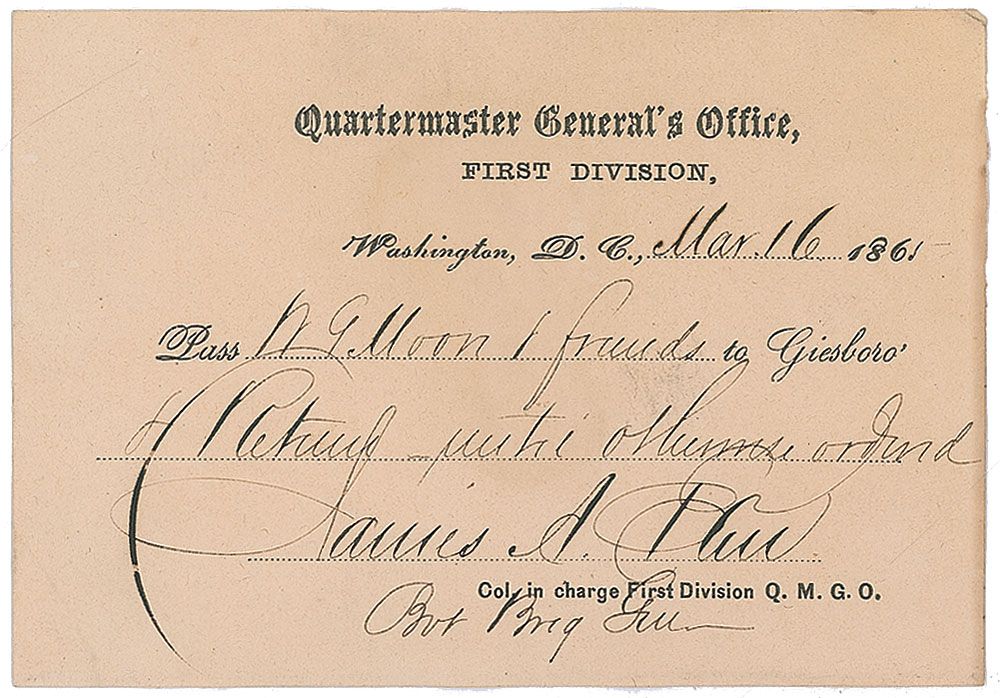 Quartermaster General's Office,
FIRST DIVISION,
Washington, D. C., Mar. 16 1865
Pass W G Moon & friends to Giesboro'
& Return until otherwise ordered
James A. Ekin
Col. in charge First Division Q. M. G. O.
Bvt Brig Gen